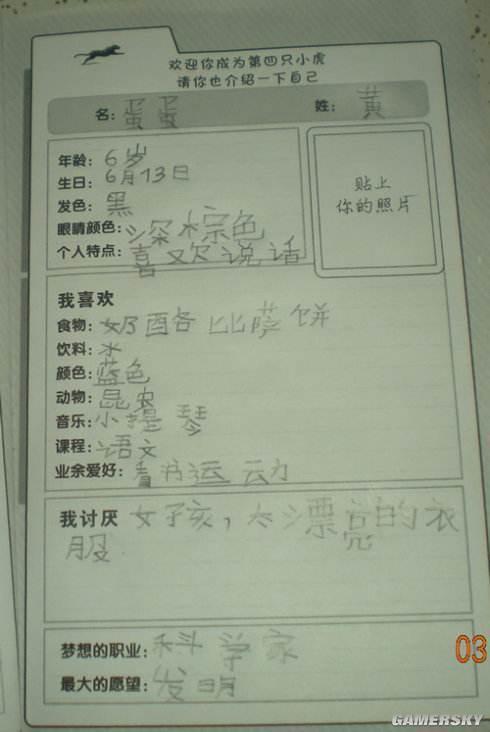 欢迎你成为第四只小虎
请你也介绍一下自己
名: 蛋蛋 姓: 黄
年龄: 6岁
生日: 6月13日
发色: 黑
眼睛颜色: 深棕色
个人特点: 喜欢说话
贴上
你的照片
我喜欢
食物: 奶酪 比萨饼
饮料: 水
颜色: 蓝色
动物: 昆虫
音乐: 小提琴
课程: 语文
业余爱好: 看书运动
我讨厌 女孩，太漂亮的衣
服
梦想的职业: 科学家
最大的愿望: 发明
03
GAMERSKY